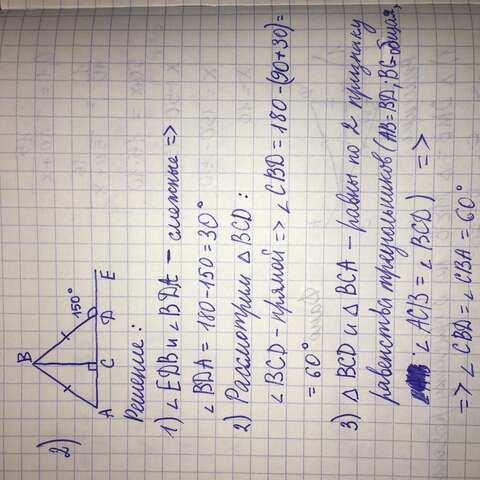 2)
B
150°
A C D E
Решение:
1) ∠EDB и ∠BDA - смежные =>
∠BDA = 180-150=30°
2) Рассмотрим △BCD:
∠BCD - прямой => ∠CBD = 180-(90+30)=
= 60°
3) △BCD и △BCA - равны по 2 признаку
равенства треугольников (AB=BD; BC-общая,
∠ACB = ∠BCD) =>
=> ∠CBD = ∠CBA = 60°